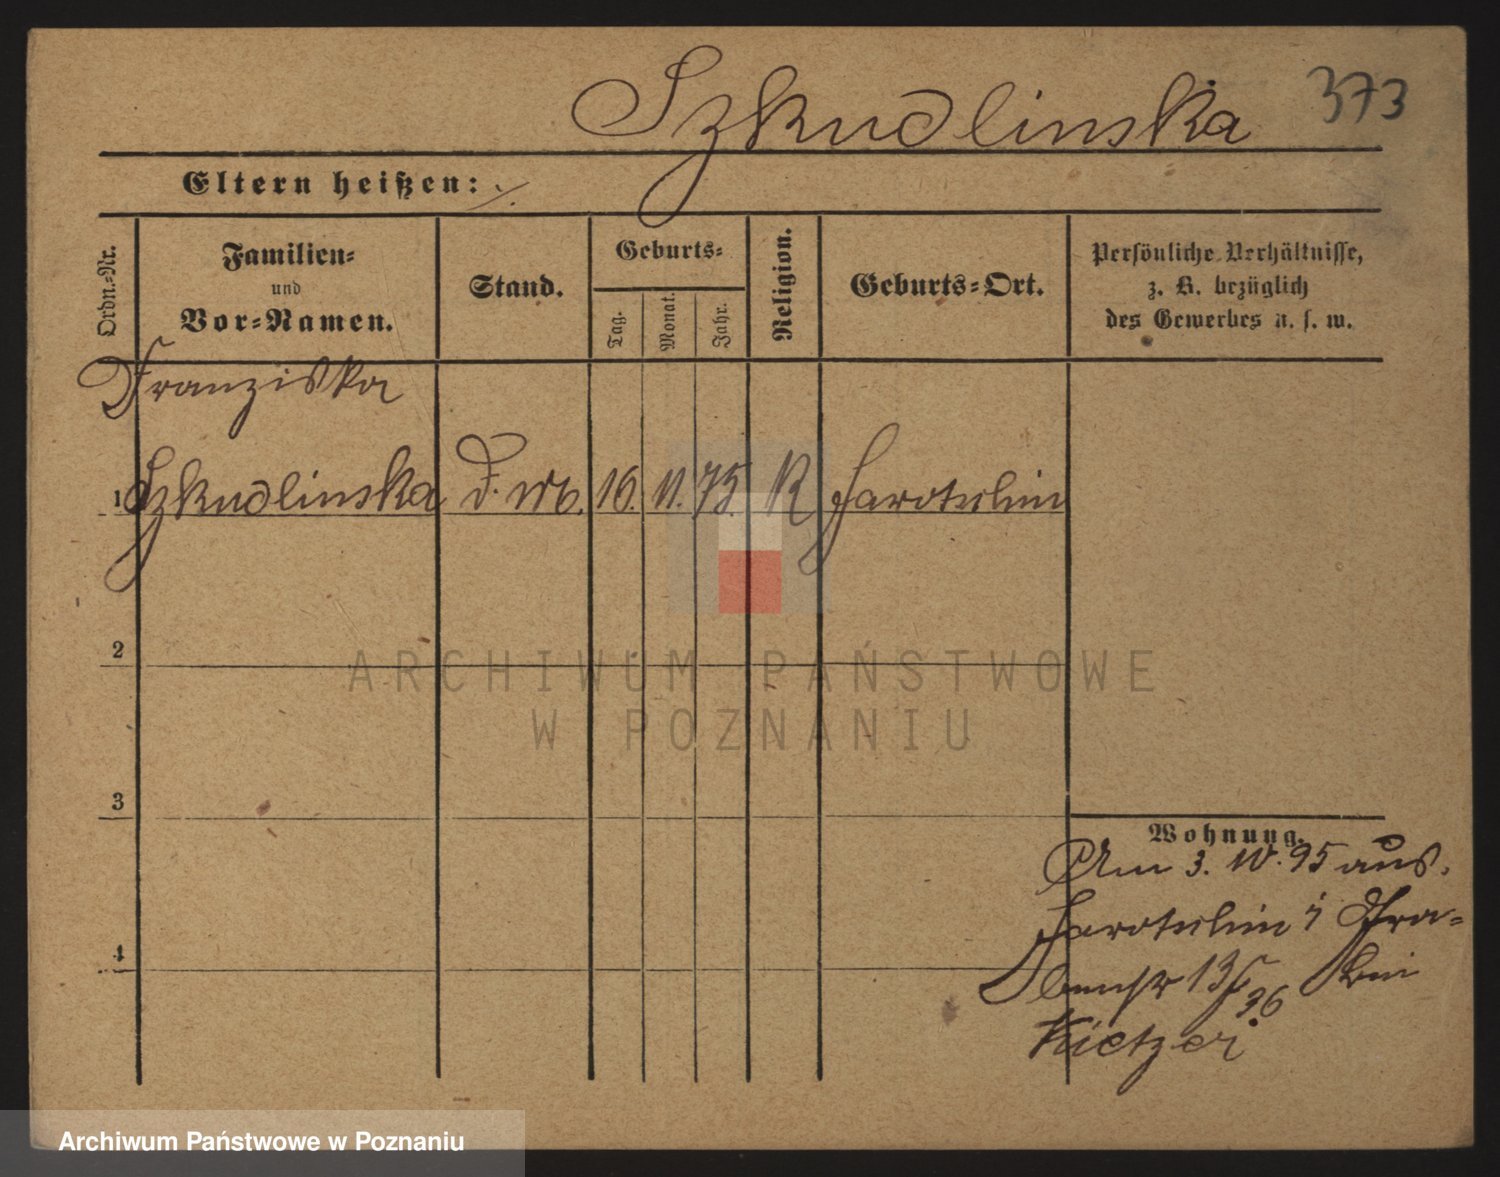 Szkudlinska 373
Eltern heißen: ./.
Ordn.-Nr.
Familien-
und
Vor-Namen.
Stand.
Geburts-
Tag.
Monat.
Jahr.
Religion.
Geburts-Ort.
Persönliche Verhältnisse,
z. B. bezüglich
des Gewerbes u. s. w.
Franziska
1 Szkudlinska 16. 11. 75. R Jarotschin
2
3
4
Wohnung.
Am 3. IV. 95 aus.
Jarotschin
13
36 bei
ARCHIWUM PAŃSTWOWE
W POZNANIU
Archiwum Państwowe w Poznaniu